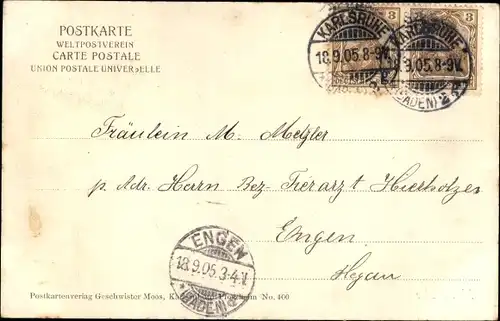 POSTKARTE
WELTPOSTVEREIN
CARTE POSTALE
UNION POSTALE UNIVERSELLE
3 3
KARLSRUHE
18.9.05.8-9V.
(BADEN) 2
KARLSRUHE
9.05.8-9V.
(BADEN) 2
Fräulein M. Metzler
p. Adr. Herrn Bez. Tierarzt Hierholzer
Engen
Hegau
ENGEN
18.9.05.3-4N.
(BADEN)
Postkartenverlag Geschwister Moos, Pforzheim No. 400